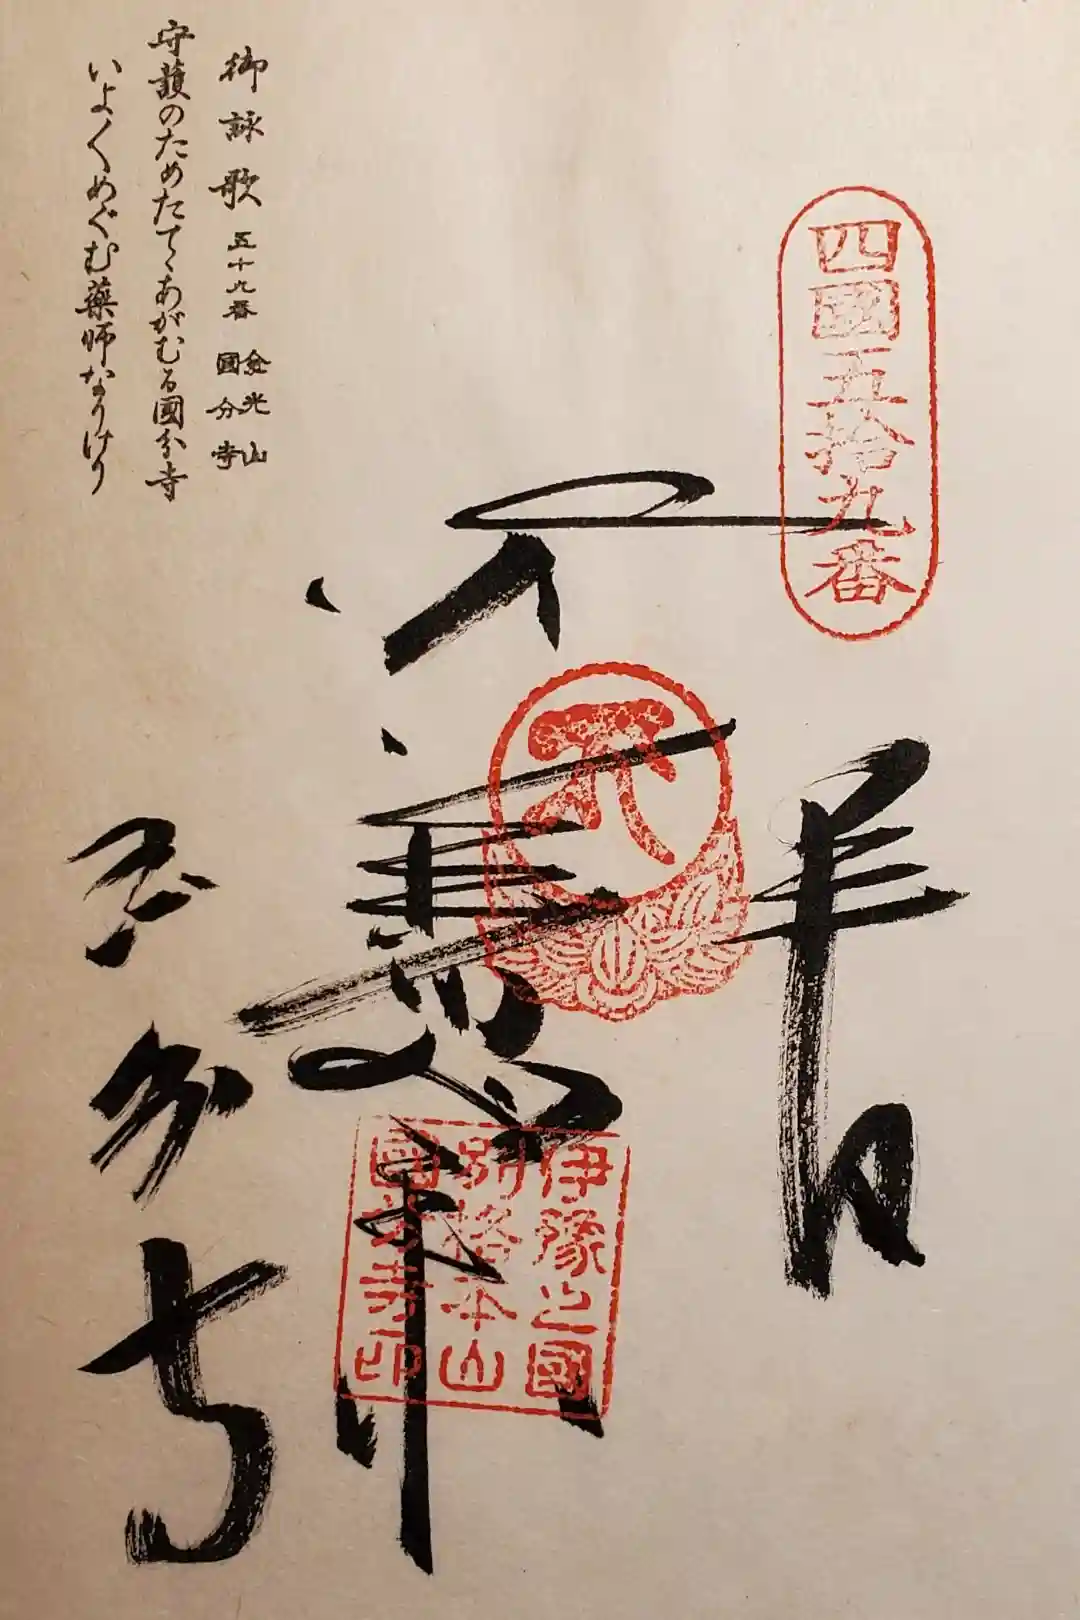 四國五拾九番
伊豫之國
別格本山
國分寺印
国分寺
御詠歌 五十九番 金光山 國分寺
守護のためたてゝあがむる國分寺
いよ〱めぐむ薬師なりけり